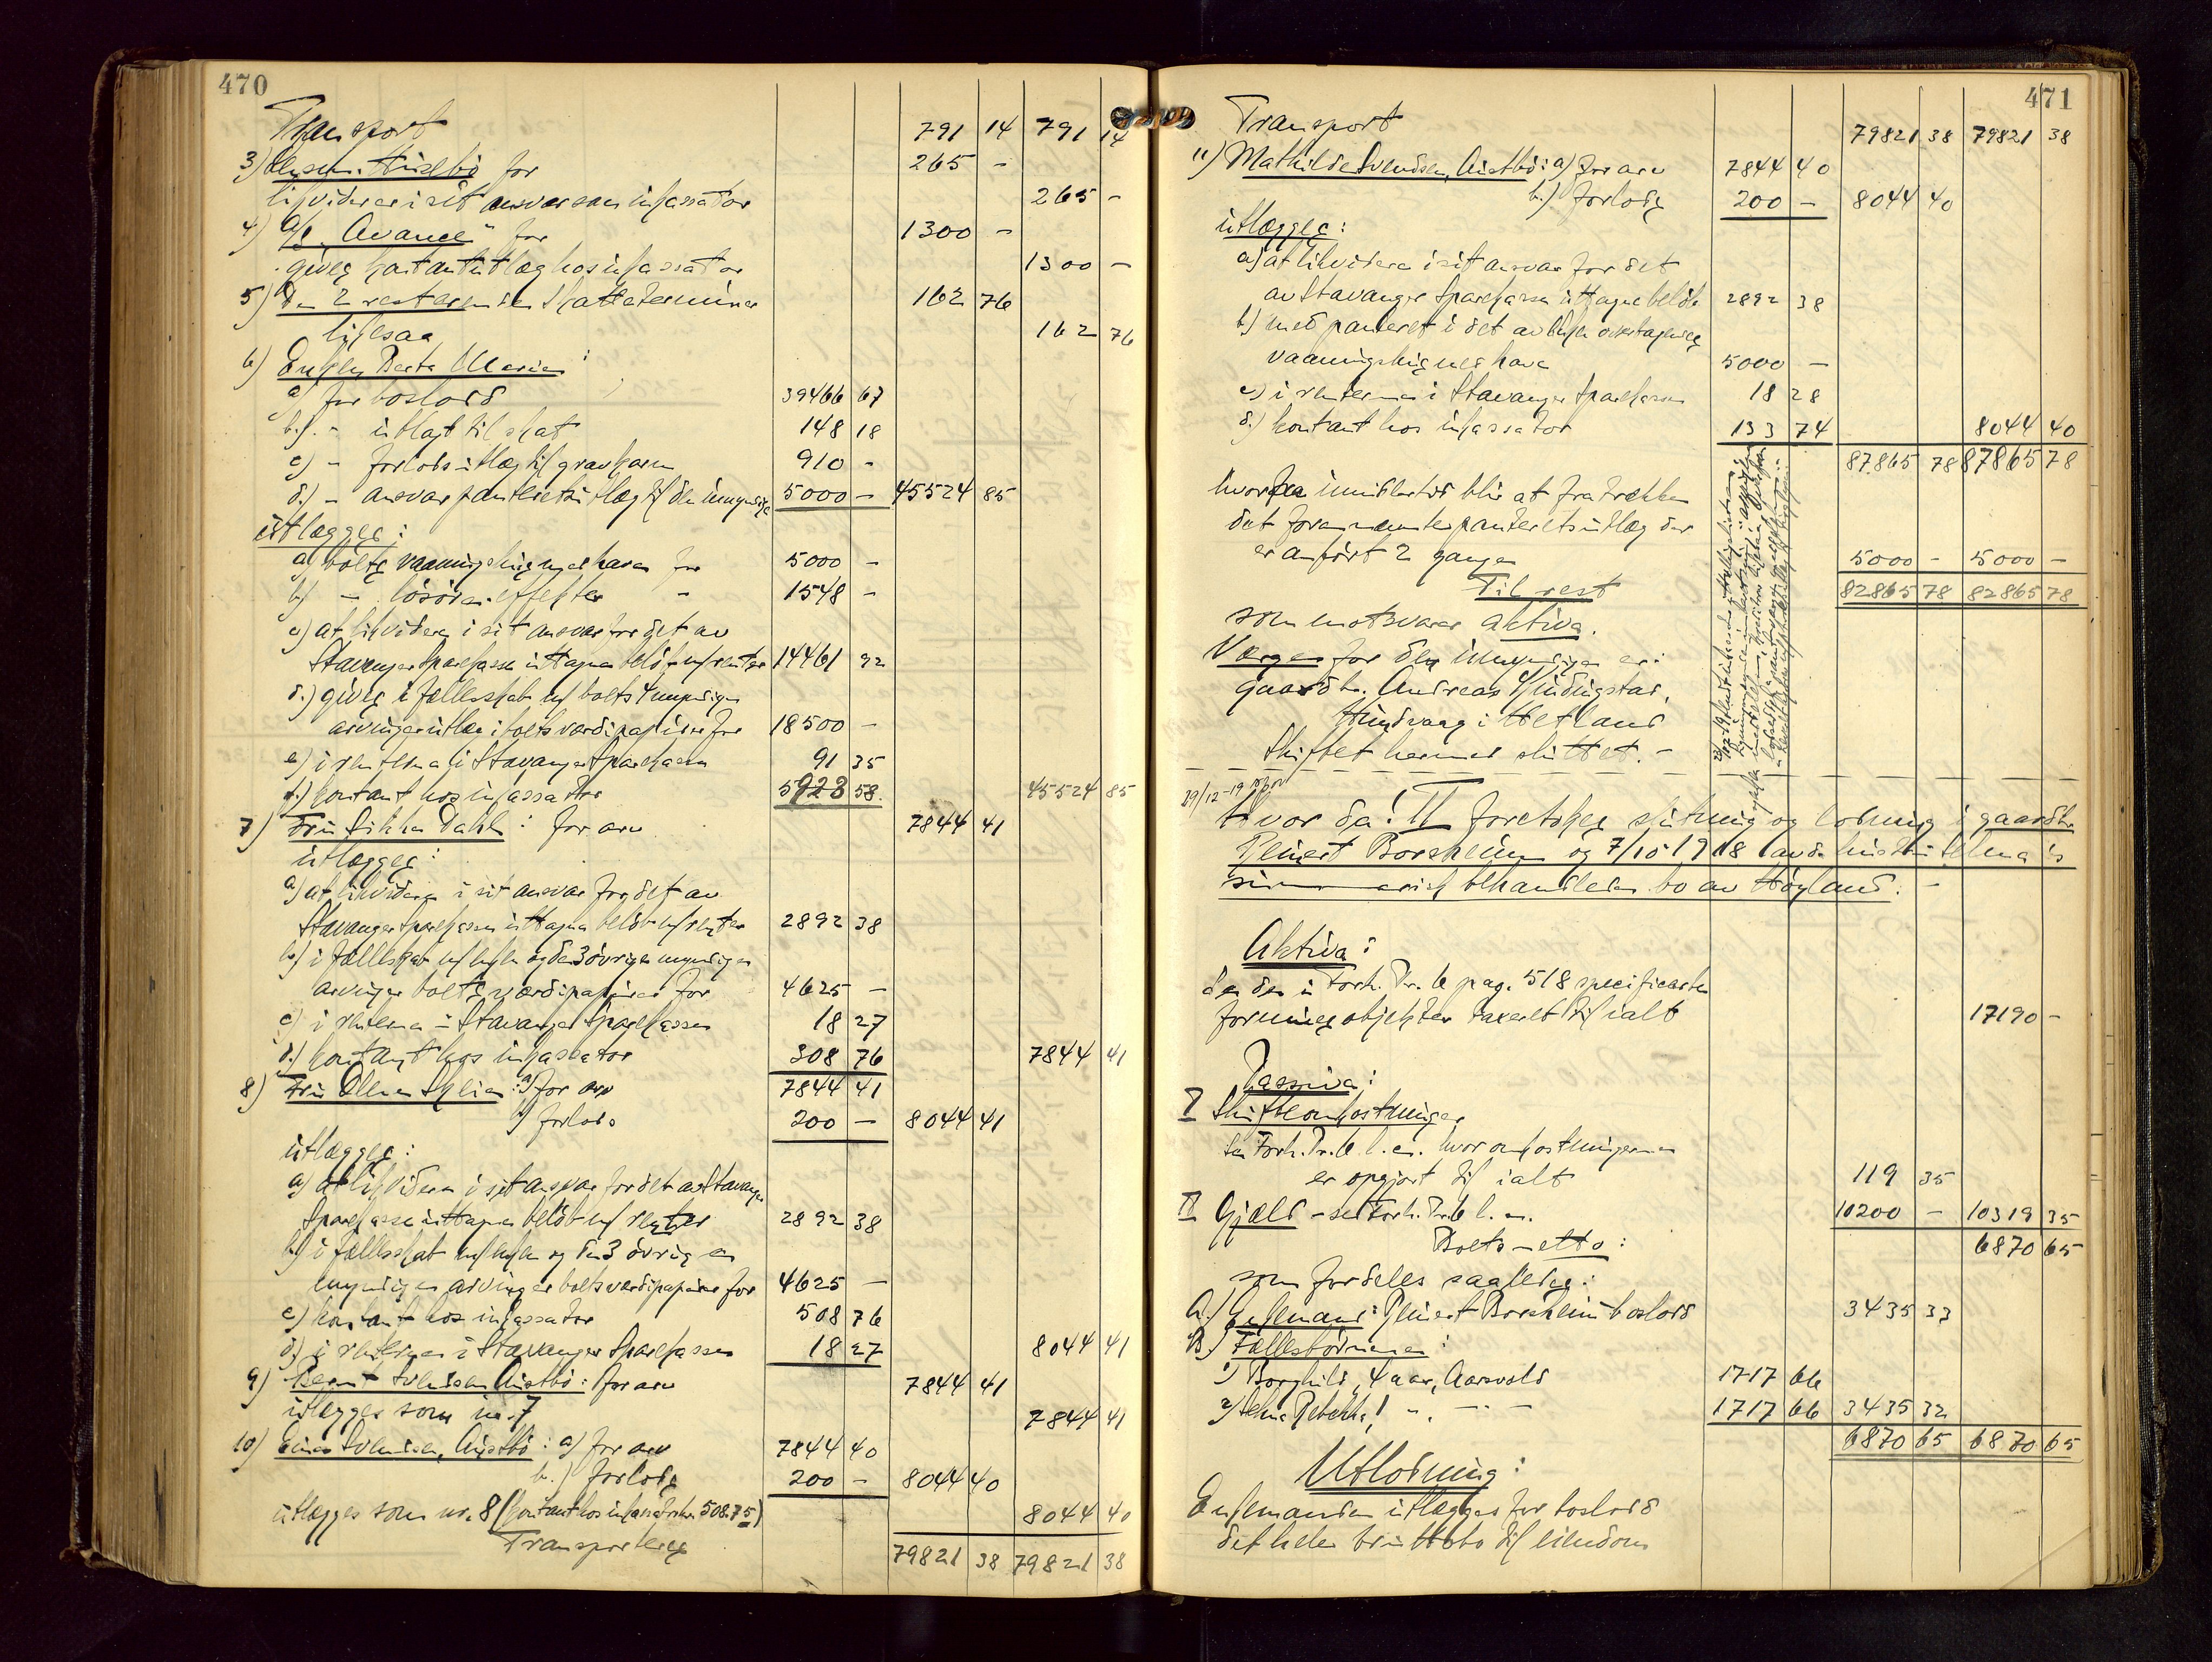 470
Transport 791 14 791 14
3) Austbö for 265 -
likviderer i sit ansvar som inkassator 265 -
4) A/S "Avance" for 1300 -
gives kontant utlæg hos inkassator 1300 -
5) De 2 resterende skatteterminer 162 76
likesaa 162 76
6) Enken Berta Maria:
a) for boslod 39466 67
b.) - utlagt til skat 148 18
c) - forlods utlæg til gravkarm 910 -
d.) - ansvar panterets utlæg til den umyndige 5000 - 45524 85
utlægges:
a) boets vaaningshus med have for 5000 -
b) - lösöre effekter - 1548 -
c) at likvidere i sit ansvar for det av
Stavanger Sparekasse uttagne belöb m/ renter 14461 92
d.) gives i fællesskab m/ boets 4 myndige
arvinger utlæg i boets værdipapirer for 18500 -
e) i renterne i Stavanger Sparekasse 91 35
f.) kontant hos inkassator 5923 58 45524 85
7) Fru Dahl: for arv 7844 41
utlægges:
a) at likvidere i sit ansvar for det av
Stavanger Sparekasse uttagne belöb m/ renter 2892 38
b) i fællesskab m/ enken og de 3 övrige myndige
arvinger boets værdipapirer for 4625 -
c) i renterne i Stavanger Sparekasse 18 27
d.) kontant hos inkassator 308 76 7844 41
8) Fru : a) for arv 7844 41
b) forlods 200 - 8044 41
utlægges:
a) at likvidere i sit ansvar for det av Stavanger
Sparekasse uttagne belöb m/ renter 2892 38
b) i fællesskab m/ enken og de 3 övrige
myndige arvinger boets værdipapirer for 4625 -
c) kontant hos inkassator 508 76
d) i renterne i Stavanger Sparekasse 18 27 8044 41
9) Bernt Svendsen Austbö: for arv 7844 41
utlægges som nr. 7 7844 41
10) Svendsen Austbö: a) for arv 7844 40
b.) forlods 200 - 8044 40
utlægges som nr. 8 (kontant hos inkassator kr. 508.75) 8044 40
Transporteres 79821 38 79821 38
471
Transport 79821 38 79821 38
11) Mathilde Svendsen Austbö: a) for arv 7844 40
b.) forlods 200 - 8044 40
utlægges:
a) at likvidere i sit ansvar for det
av Stavanger Sparekasse uttagne belöb 2892 38
b) med panteret i det av enken overtagne
vaaningshus med have 5000 -
c) i renterne i Stavanger Sparekasse 18 28
d.) kontant hos inkassator 133 74 8044 40
87865 78 87865 78
hvorfra imidlertid blir at fratrekke
det forannævnte panteretsutlæg der
er anfört 2 gange 5000 - 5000 -
Til rest 82865 78 82865 78
som motsvarer aktiva.
Værge for den umyndige er:
gaardbr. Andreas
Hundvaag i Hetland
Skiftet hermed sluttet. -
29/12-19
Hvor da: II foretokes slutning og lodning i gaardbr.
Reinert Borsheim og 7/10 1918 avd. hustru
behandlede bo av Höyland. -
Aktiva:
den i Forh. Pr. 6 pag. 518 specificerte
formuesobjekter taxeret til ialt 17190 -
Passiva:
I Skifteomkostninger
se Forh. Pr. 6 l. c. hvor omkostningerne
er opgjort til ialt 119 35
II Gjæld - se Forh. Pr. 6 l. c. 10200 - 10319 35
Boets netto: 6870 65
som fordeles saaledes:
A.) Enkemand: Reinert Borsheim boslod 3435 33
B.) Fællesbörnene:
1) Borghild, 4 aar, Aarsvold 1717 66
2) Rebekka, 1 - " - " - 1717 66 3435 32
6870 65 6870 65
Utlodning:
Enkemanden utlægges for boslod
det hele bruttobo til eiendom